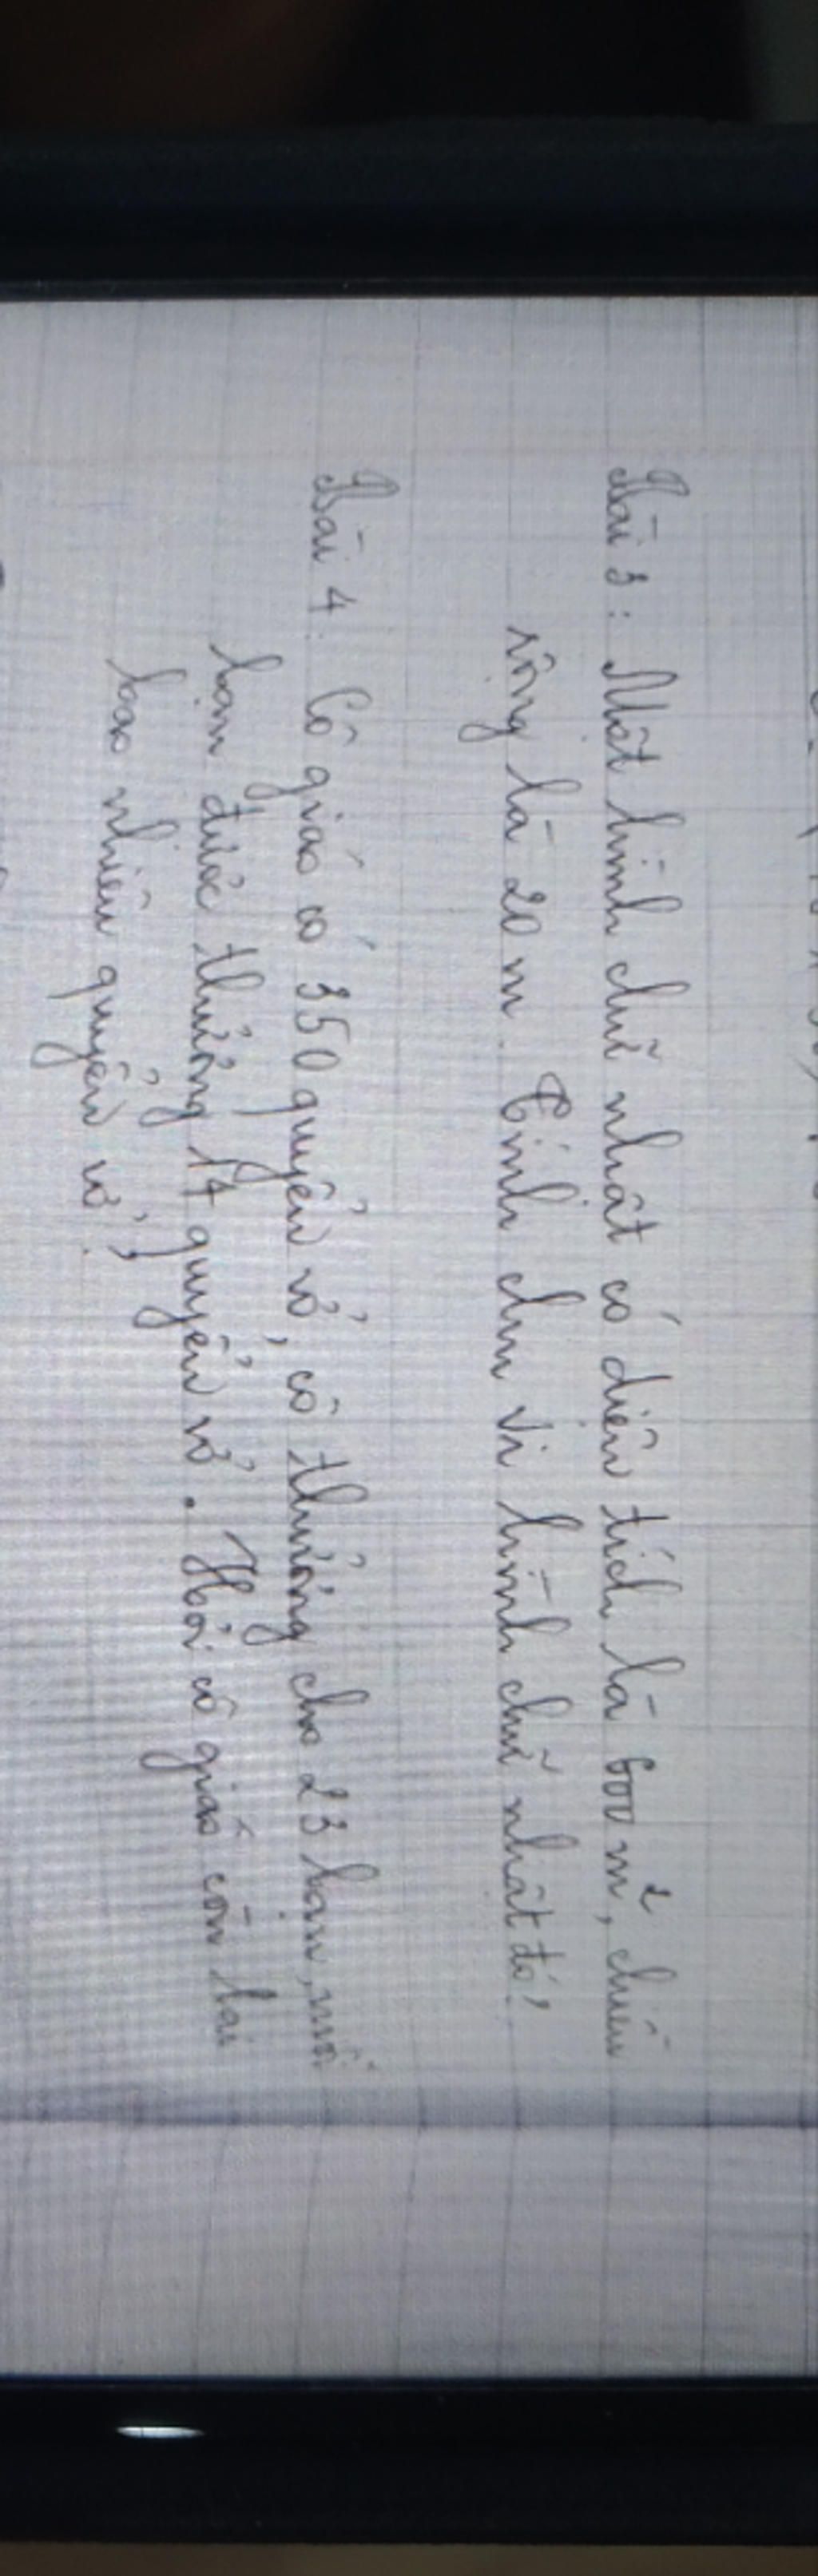 Bài 3: Một hình chữ nhật có diện tích là 600 m², chiều
rộng là 20 m. Tính chu vi hình chữ nhật đó?
Bài 4: Cô giáo có 350 quyển vở, cô thưởng cho 23 bạn, mỗi
bạn được thưởng 14 quyển vở. Hỏi cô giáo còn lại
bao nhiêu quyển vở?